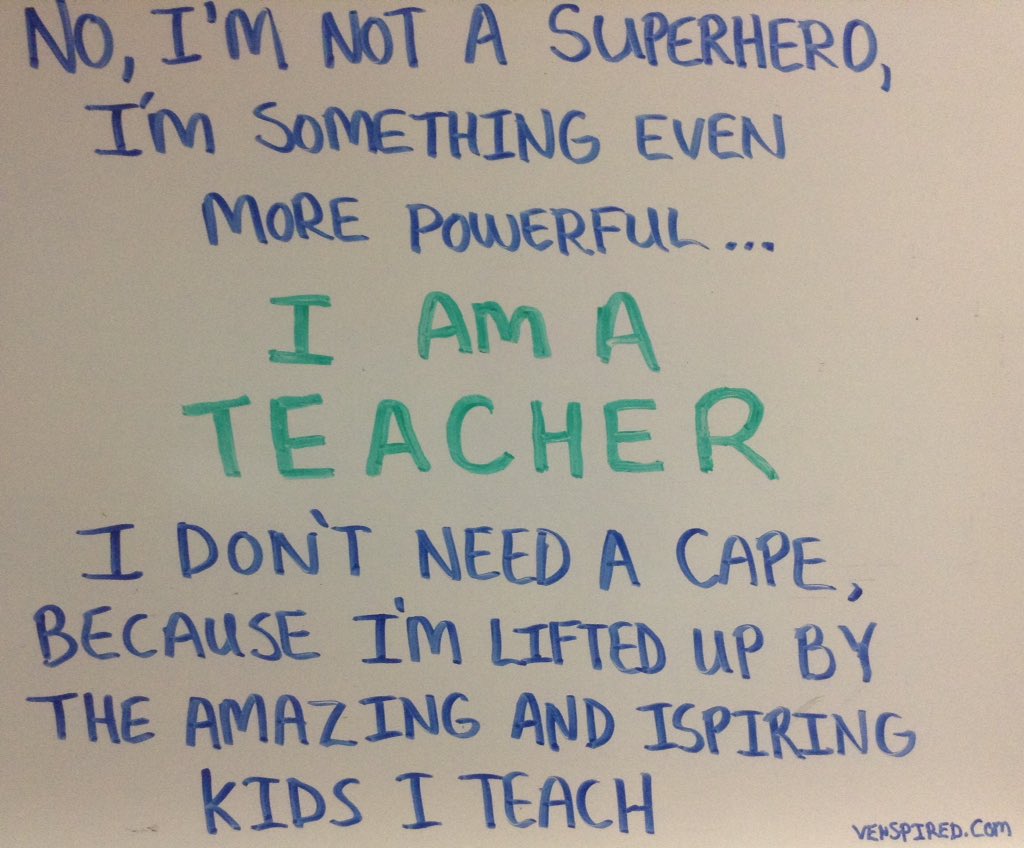 NO, I'M NOT A SUPERHERO,
I'M SOMETHING EVEN
MORE POWERFUL...
I AM A
TEACHER
I DON'T NEED A CAPE,
BECAUSE I'M LIFTED UP BY
THE AMAZING AND ISPIRING
KIDS I TEACH
VENSPIRED.COM